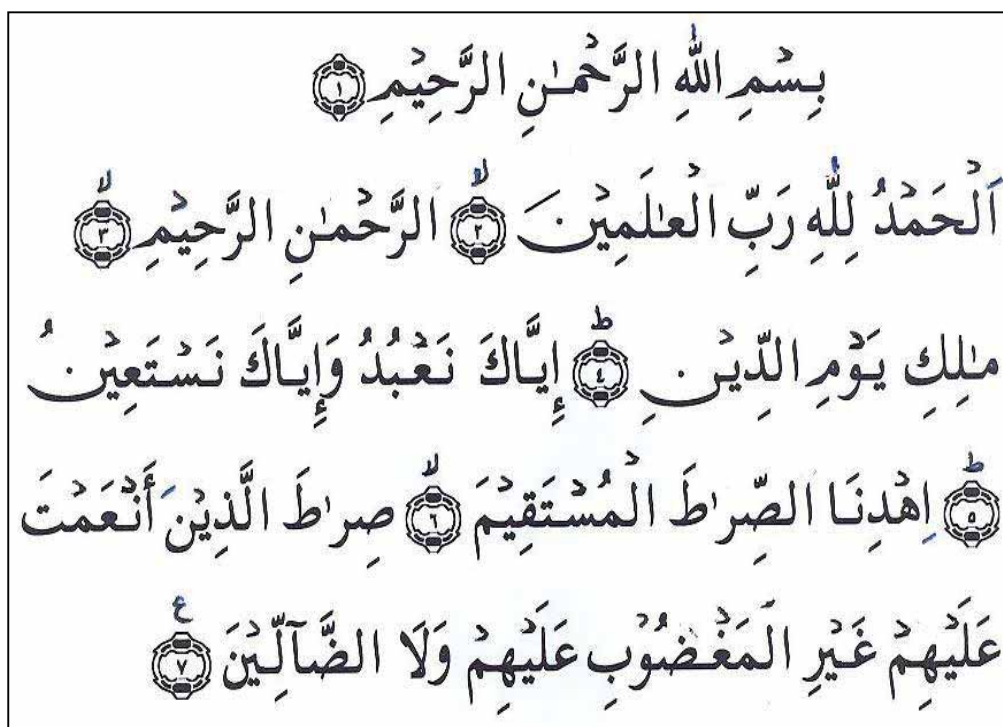 بِسْمِ اللّٰهِ الرَّحْمٰنِ الرَّحِيْمِ ١
اَلْحَمْدُ لِلّٰهِ رَبِّ الْعٰلَمِيْنَ ۙ ٢ الرَّحْمٰنِ الرَّحِيْمِ ۙ ٣
مٰلِكِ يَوْمِ الدِّيْنِ ؕ ٤ إِيَّاكَ نَعْبُدُ وَإِيَّاكَ نَسْتَعِيْنُ
ؕ ٥ اِهْدِنَا الصِّرٰطَ الْمُسْتَقِيْمَ ۙ ٦ صِرٰطَ الَّذِيْنَ أَنْعَمْتَ
عَلَيْهِمْ غَيْرِ الْمَغْضُوْبِ عَلَيْهِمْ وَلَا الضَّآلِّيْنَ ٧ ع